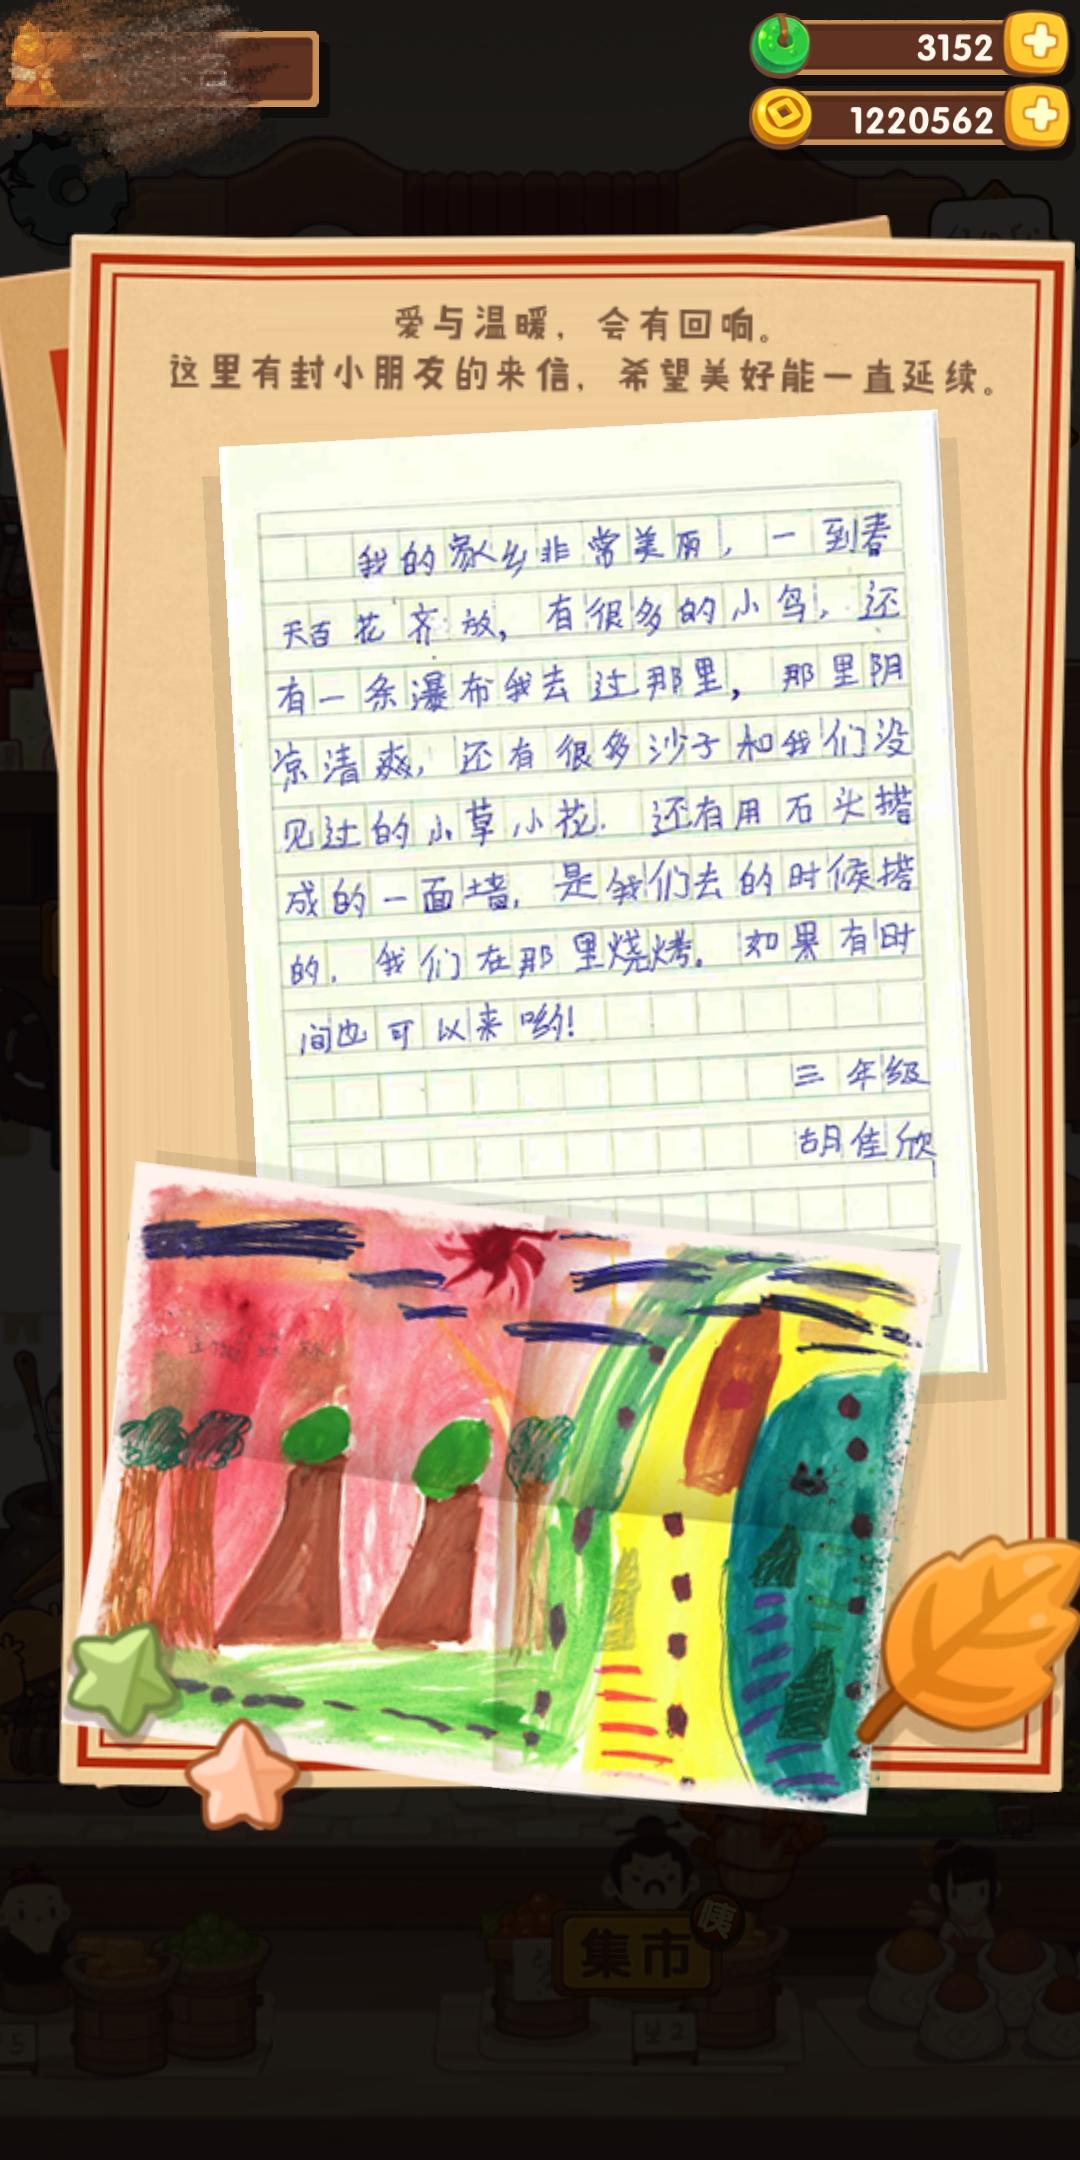 3152
1220562
爱与温暖，会有回响。
这里有封小朋友的来信，希望美好能一直延续。
我的家乡非常美丽，一到春
天百花齐放，有很多的小鸟，还
有一条瀑布我去过那里，那里阴
凉清爽，还有很多沙子和我们没
见过的小草小花．还有用石头搭
成的一面墙，是我们去的时候搭
的．我们在那里烧烤．如果有时
间也可以来哟！
三年级
胡佳欣
集市
咦